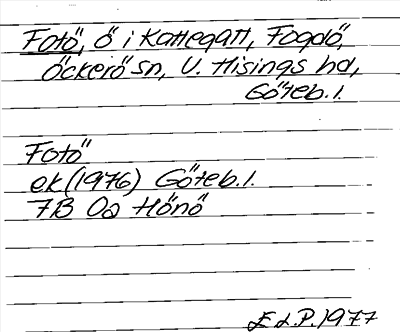 Fotö, ö i Kattegatt, Fogdö,
Öckerö sn, V. Hisings hd,
Göteb. l.
Fotö
ek (1976) Göteb. l.
7B 0a Hönö
E L.P. 1977